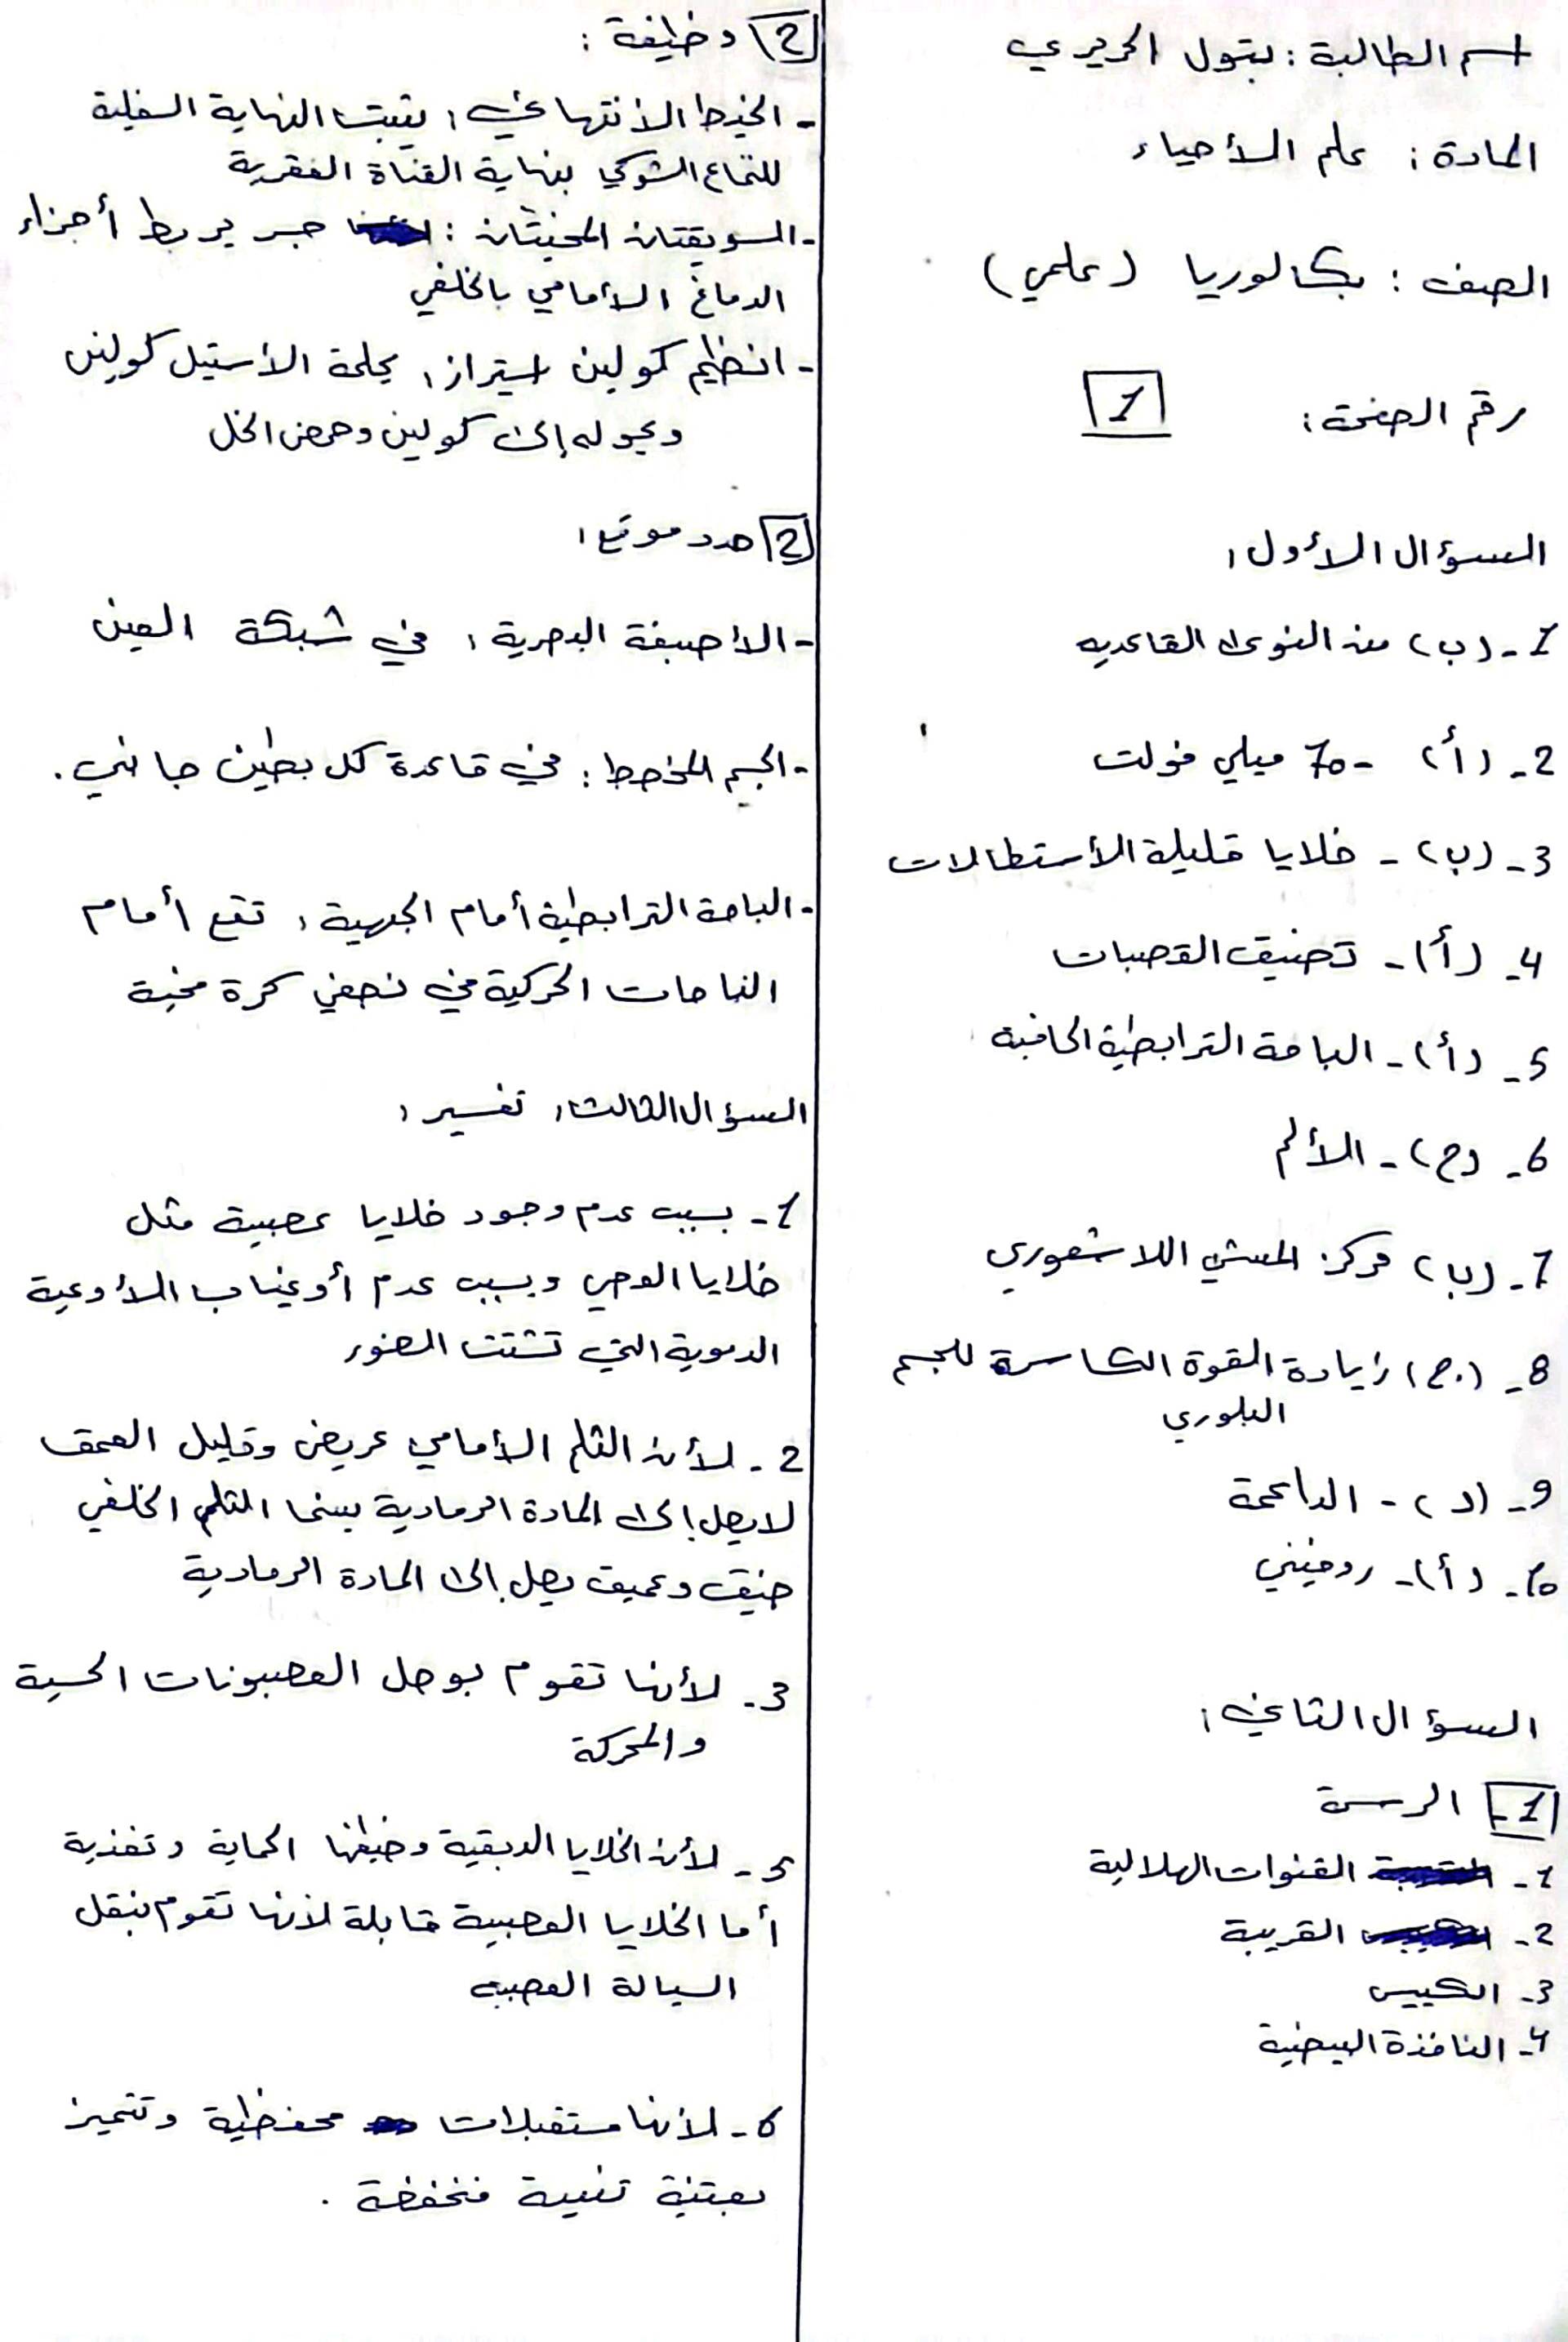 اسم الطالبة : بتول الحريري
المادة : علم الأحياء
الصف : بكالوريا (علمي)
رقم الصفحة : 1
السؤال الأول :
1- (ب) من النوى القاعديه
2- (أ) -70 ميلي فولت
3- (ب) - خلايا قليلة الأستطالات
4- (أ) - تضيق القصبات
5- (أ) - الباحة الترابطية الحافية
6- (ج) - الألم
7- (ب) مركز المشي اللاشعوري
8- (ج) زيادة القوة الكاسرة للجسم
البلوري
9- (د) - الداعمة
10- (أ) - رودنيني
السؤال الثاني :
1- الرسمة
1- القنوات الهلالية
2- القريبة
3- الكييس
4- النافذة البيضية
2 وظيفة :
- الخيط الانتهائي : يثبت النهاية السفلية
للنخاع الشوكي بنهاية القناة الفقرية
- السويقتان المخيتان : جسر يربط أجزاء
الدماغ الأمامي بالخلفي
- انظيم كولين استراز : حلمة الأستيل كولين
ويحوله إلى كولين وحمض الخل
2 حدد موقع :
- الاصبغة البصرية : في شبكة العين
- الجسم المخطط : في قاعدة كل بطين جانبي .
- الباحة الترابطية أمام الجبهية : تقع أمام
الباحات الحركية في نصفي كرة مخية
السؤال الثالث : تفسير :
1- بسبب عدم وجود خلايا عصبية مثل
خلايا العصي وبسبب عدم أو غياب الأوعية
الدموية التي تشتت الضوء
2- لأن الثلم الأمامي عريض وقليل العمق
لا يصل إلى المادة الرمادية بينما الثلم الخلفي
ضيق وعميق يصل إلى المادة الرمادية
3- لأنها تقوم بوصل العصبونات الحسية
والمحركة
5- لأن الخلايا الدبقية وظيفتها الحماية وتغذية
أما الخلايا العصبية قابلة لأنها تقوم بنقل
السيالة العصبية
6- لأنها مستقبلات محفظية وتتميز
بعتبة تنبيه منخفضة .